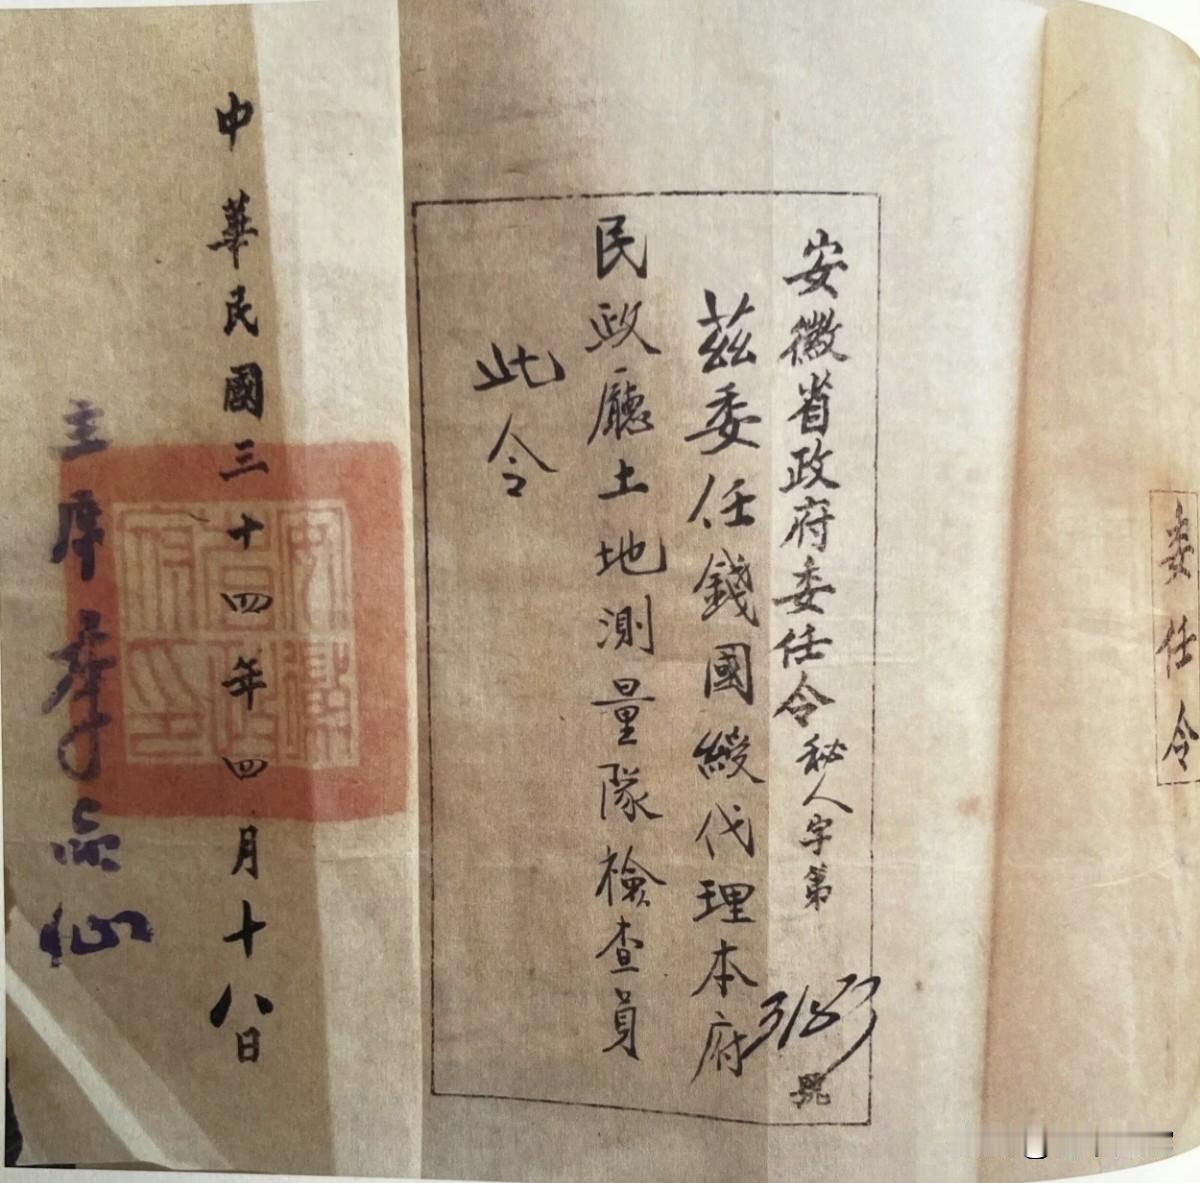 委任令
安徽省政府委任令秘人字第3183號
茲委任錢國綬代理本府
民政廳土地測量隊檢查員
此令
中華民國三十四年四月十八日
主席李品仙
安徽省政府印